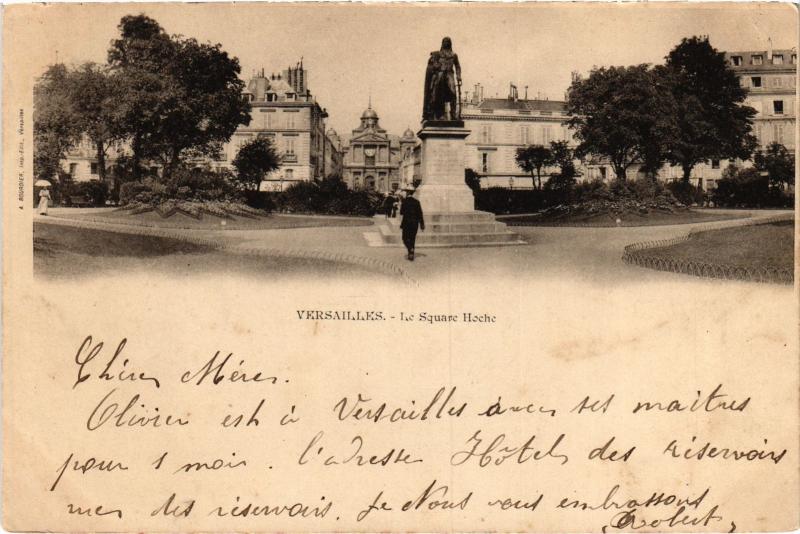 A. BOURDIER, Imp.-Edit., Versailles
VERSAILLES. - Le Square Hoche
Chère Mère.
Olivier est à Versailles avec ses maitres
pour 1 mois. l'adresse Hôtel des réservoirs
rue des réservoirs. Je Nous vous embrassons
Robert